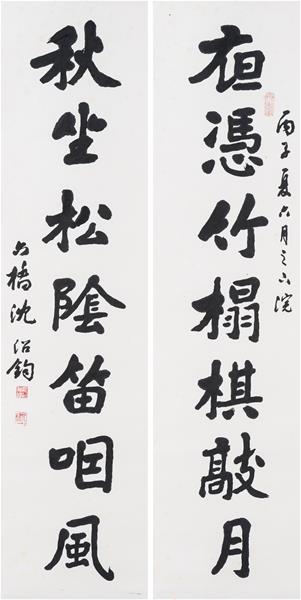 亱憑竹榻棋敲月
丙子夏六月之浣
秋坐松陰笛咽風
六橋沈鈞